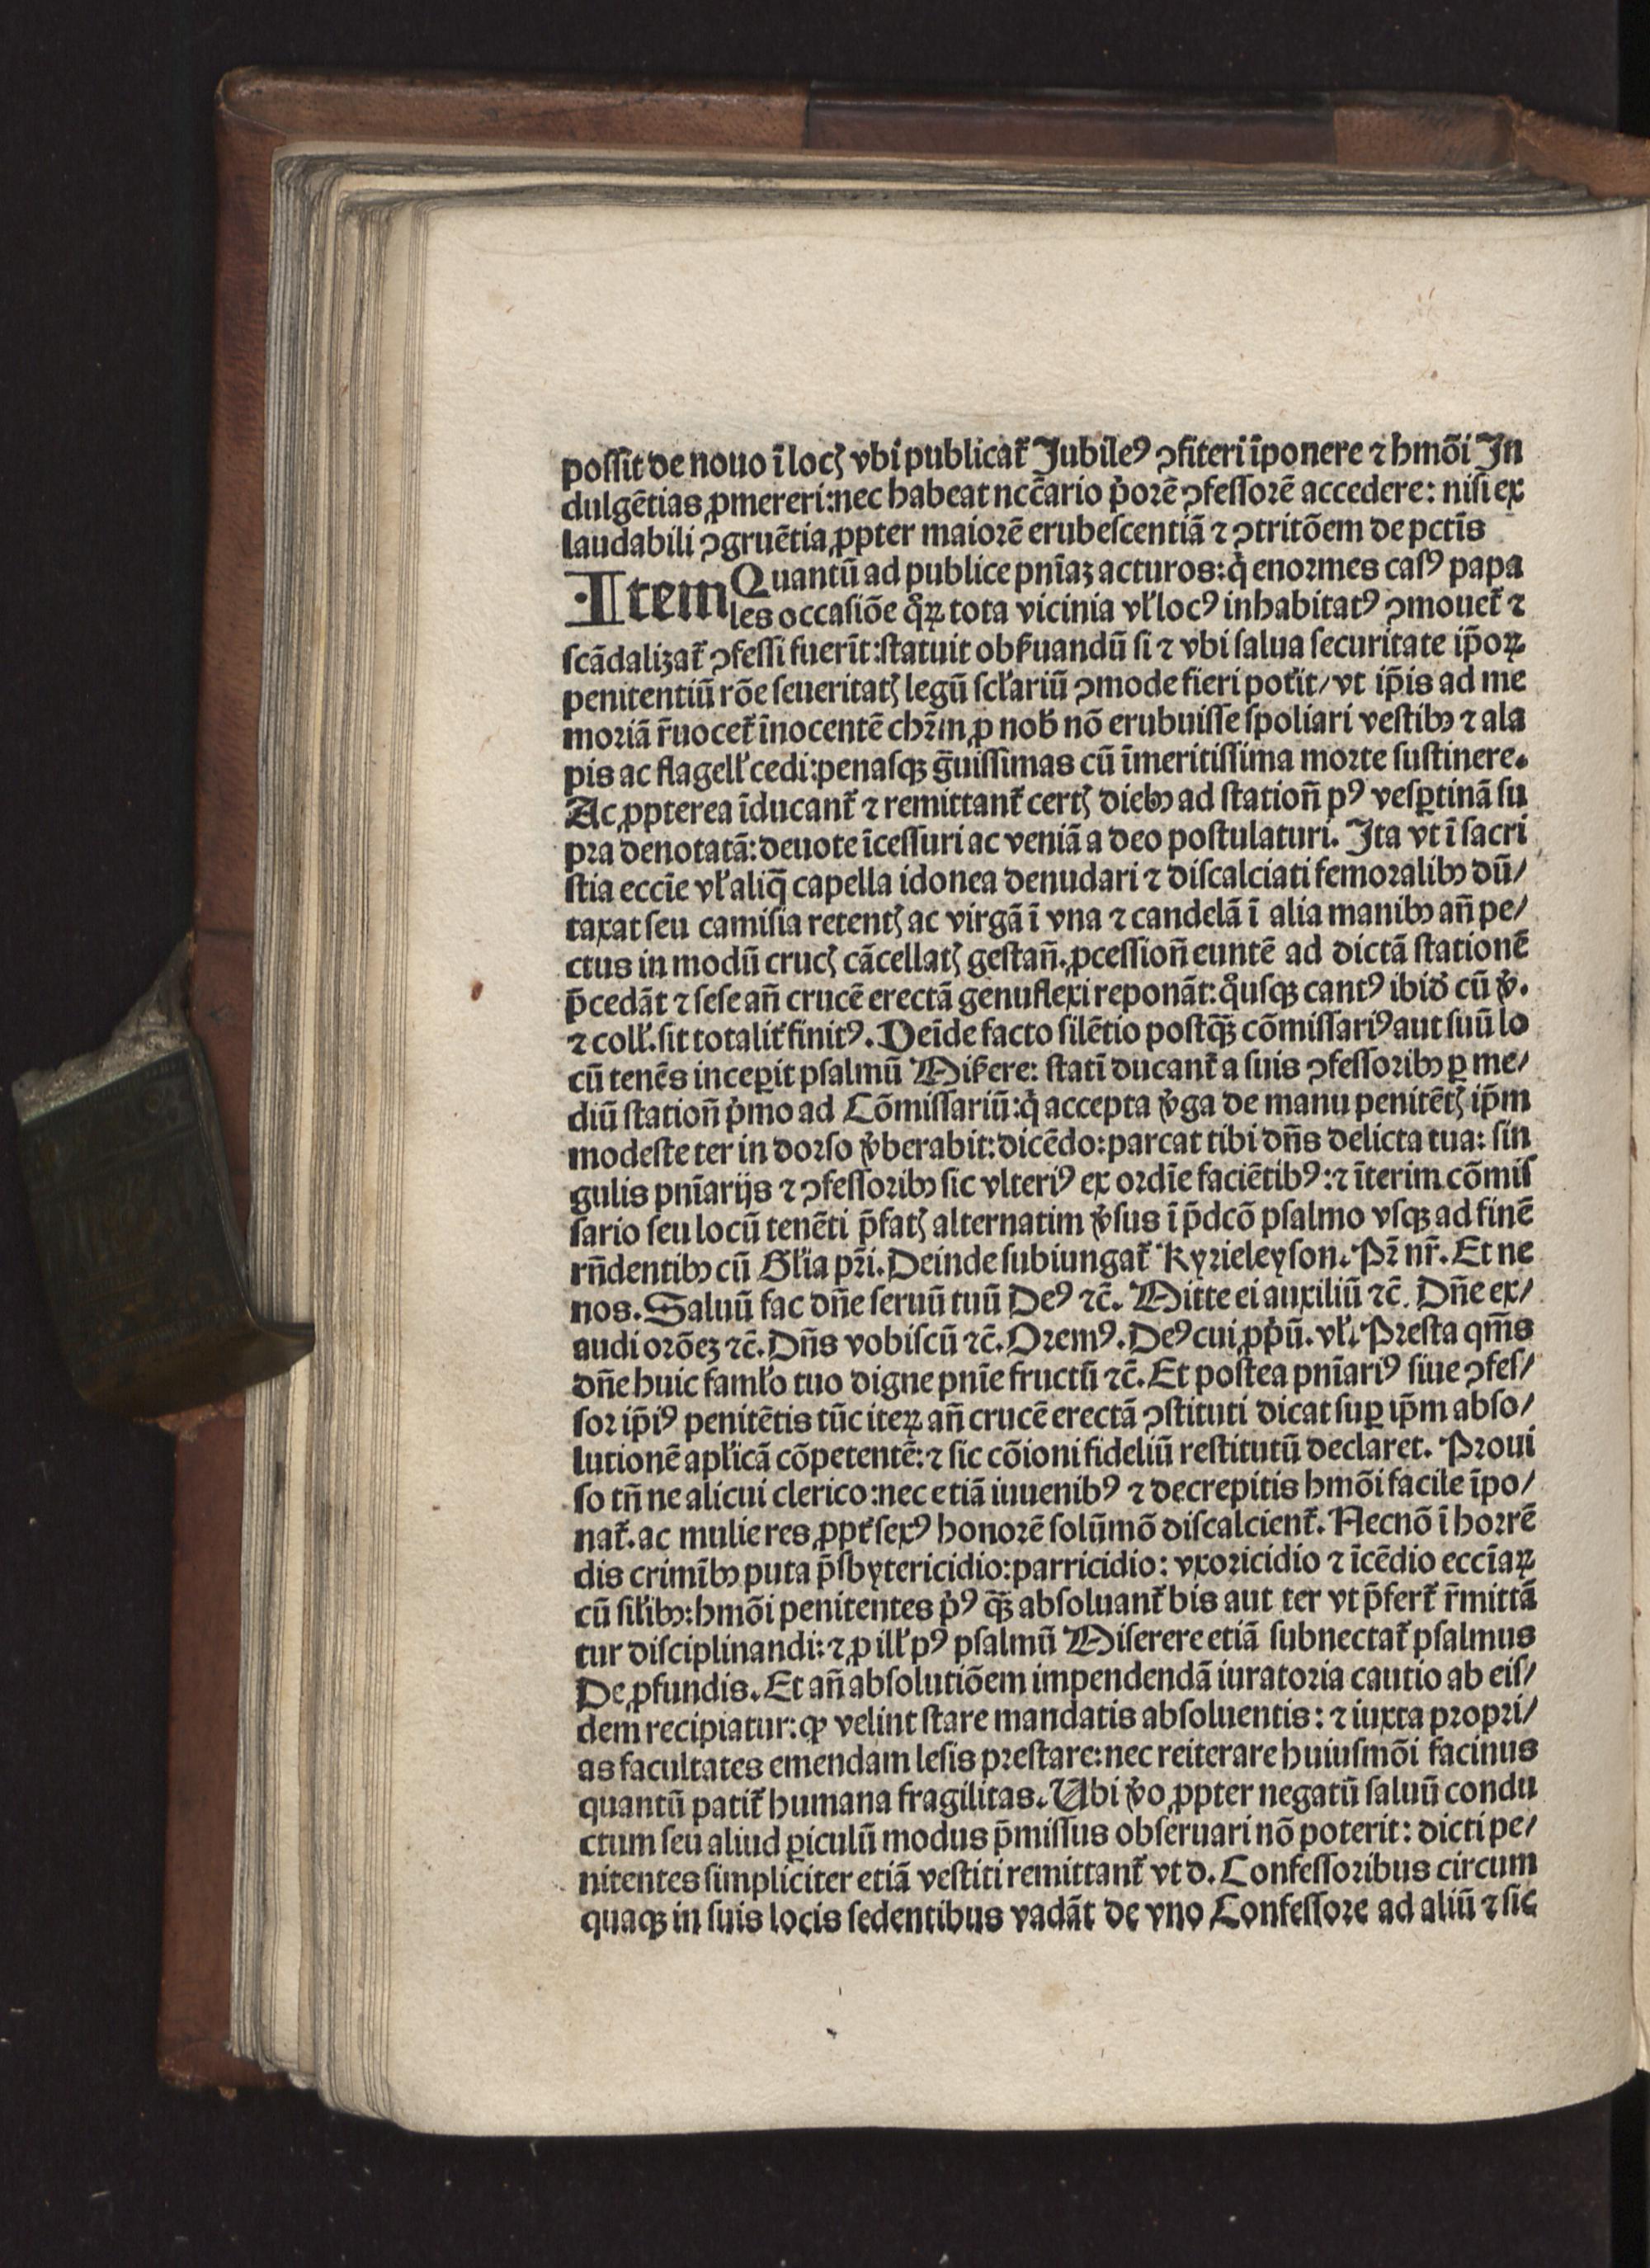 poſſit de nouo ī locꝭ vbi publicat᷑ Jubileꝰ ꝯfiteri īponere ⁊ hmōi In
dulgētias ꝓmereri: nec habeat nccārio p̓orē ꝯfeſſorē accedere: niſi ex
laudabili ꝯgruētia ꝓpter maiorē erubeſcentiā ⁊ ꝯtritōem de pctīs
Item Quantū ad publice pnīaꝫ acturos: q̇ enormes caſꝰ papa
les occaſiōe q̊ꝝ tota vicinia vl̓ locꝰ inhabitatꝰ ꝯmouet᷑ ⁊
ſcādalizat᷑ ꝯfeſſi fuerīt: ſtatuit obẜuandū ſi ⁊ vbi ſalua ſecuritate ip̄oꝝ
penitentiū rōe ſeueritatꝭ legū ſcl̓ariū ꝯmode fieri pot̓it/ vt ip̄is ad me
moriā r̄uocet᷑ īnocentē chr̄m ꝓ nob̓ nō erubuiſſe ſpoliari veſtibꝫ ⁊ ala
pis ac flagell̓ cedi: penaſqꝫ g̈uiſſimas cū īmeritiſſima morte ſuſtinere.
Ac ꝓpterea īducant᷑ ⁊ remittant᷑ certꝭ diebꝫ ad ſtation̄ pꝰ veſꝑtinā ſu
pra denotatā: deuote īceſſuri ac veniā a deo poſtulaturi. Ita vt ī ſacri
ſtia eccīe vl̓ aliq̄ capella idonea denudari ⁊ diſcalciati femoralibꝫ dū/
taxat ſeu camiſia retentꝭ ac virgā ī vna ⁊ candelā ī alia manibꝫ an̄ pe/
ctus in modū crucꝭ cācellatꝭ geſtan̄. ꝓceſſion̄ euntē ad dictā ſtationē
p̄cedāt ⁊ ſeſe an̄ crucē erectā genuflexi reponāt: q̊uſqꝫ cantꝰ ibid̓ cū v̓.
⁊ coll̓. ſit totalit̓ finitꝰ. Deīde facto ſilētio poſtq̄ꝫ cōmiſſariꝰ aut ſuū lo
cū tenēs inceꝑit pſalmū Miẜere: ſtatī ducant᷑ a ſuis ꝯfeſſoribꝫ ꝑ me/
diū ſtation̄ p̓mo ad Cōmiſſariū: q̇ accepta v̓ga de manu penitētꝭ ip̄m
modeſte ter in dorſo v̓berabit: dicēdo: parcat tibi dn̄s delicta tua: ſin
gulis pnīarijs ⁊ ꝯfeſſoribꝫ ſic vlteriꝰ ex ordīe faciētibꝰ: ⁊ īterim cōmiſ
ſario ſeu locū tenēti p̄fatꝭ alternatim v̓ſus ī p̄dcō pſalmo vſqꝫ ad finē
rn̄dentibꝫ cū Gl̓ia pr̄i. Deinde ſubiungat᷑ Kyrieleyſon. Pr̄ nr̄. Et ne
nos. Saluū fac dn̄e ſeruū tuū Deꝰ ⁊c̄. Mitte ei auxiliū ⁊c̄. Dn̄e ex/
audi orōeꝫ ⁊c̄. Dn̄s vobiſcū ⁊c̄. Oremꝰ. Deꝰ cui ꝓp̓ū. vl̓. Preſta qm̄s
dn̄e huic faml̓o tuo digne pnīe fructū ⁊c̄. Et poſtea pnīariꝰ ſiue ꝯfeſ/
ſor ip̄iꝰ penitētis tūc iteꝝ an̄ crucē erectā ꝯſtituti dicat ſuꝑ ip̄m abſo/
lutionē apl̓icā cōpetentē: ⁊ ſic cōioni fideliū reſtitutū declaret. Proui
ſo tn̄ ne alicui clerico: nec etiā iuuenibꝰ ⁊ decrepitis hmōi facile īpo/
nat᷑. ac mulieres ꝓpt̓ ſexꝰ honorē ſolūmō diſcalcient᷑. Necnō ī horrē
dis crimībꝫ puta p̄ſbytericidio: parricidio: vxoricidio ⁊ īcēdio eccīaꝝ
cū ſil̓ibꝫ: hmōi penitentes p̓ꝰ q̄ꝫ abſoluant᷑ bis aut ter vt p̄fert᷑ r̄mittā
tur diſciplinandi: ⁊ ꝓ ill̓ pꝰ pſalmū Miſerere etiā ſubnectat᷑ pſalmus
De ꝓfundis. Et an̄ abſolutiōem impendendā iuratoria cautio ab eiſ/
dem recipiatur: ꝙ velint ſtare mandatis abſoluentis: ⁊ iuxta propri/
as facultates emendam leſis preſtare: nec reiterare huiuſmōi facinus
quantū patit᷑ humana fragilitas. Ubi v̓o ꝓpter negatū ſaluū condu
ctum ſeu aliud ꝑiculū modus p̄miſſus obſeruari nō poterit: dicti pe/
nitentes ſimpliciter etiā veſtiti remittant᷑ vt d. Confeſſoribus circum
quaqꝫ in ſuis locis ſedentibus vadāt de vno Confeſſore ad aliū ⁊ ſic